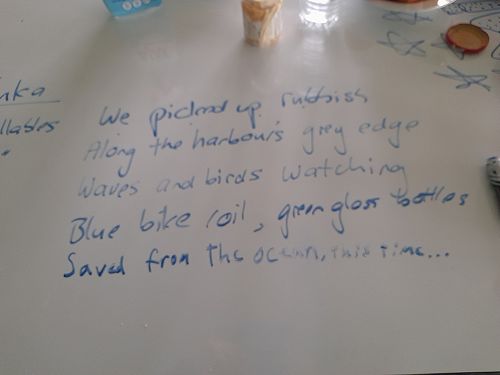 nka
llables
We picked up rubbish
Along the harbour's grey edge
Waves and birds watching
Blue bike coil, green glass bottles
Saved from the ocean, this time...